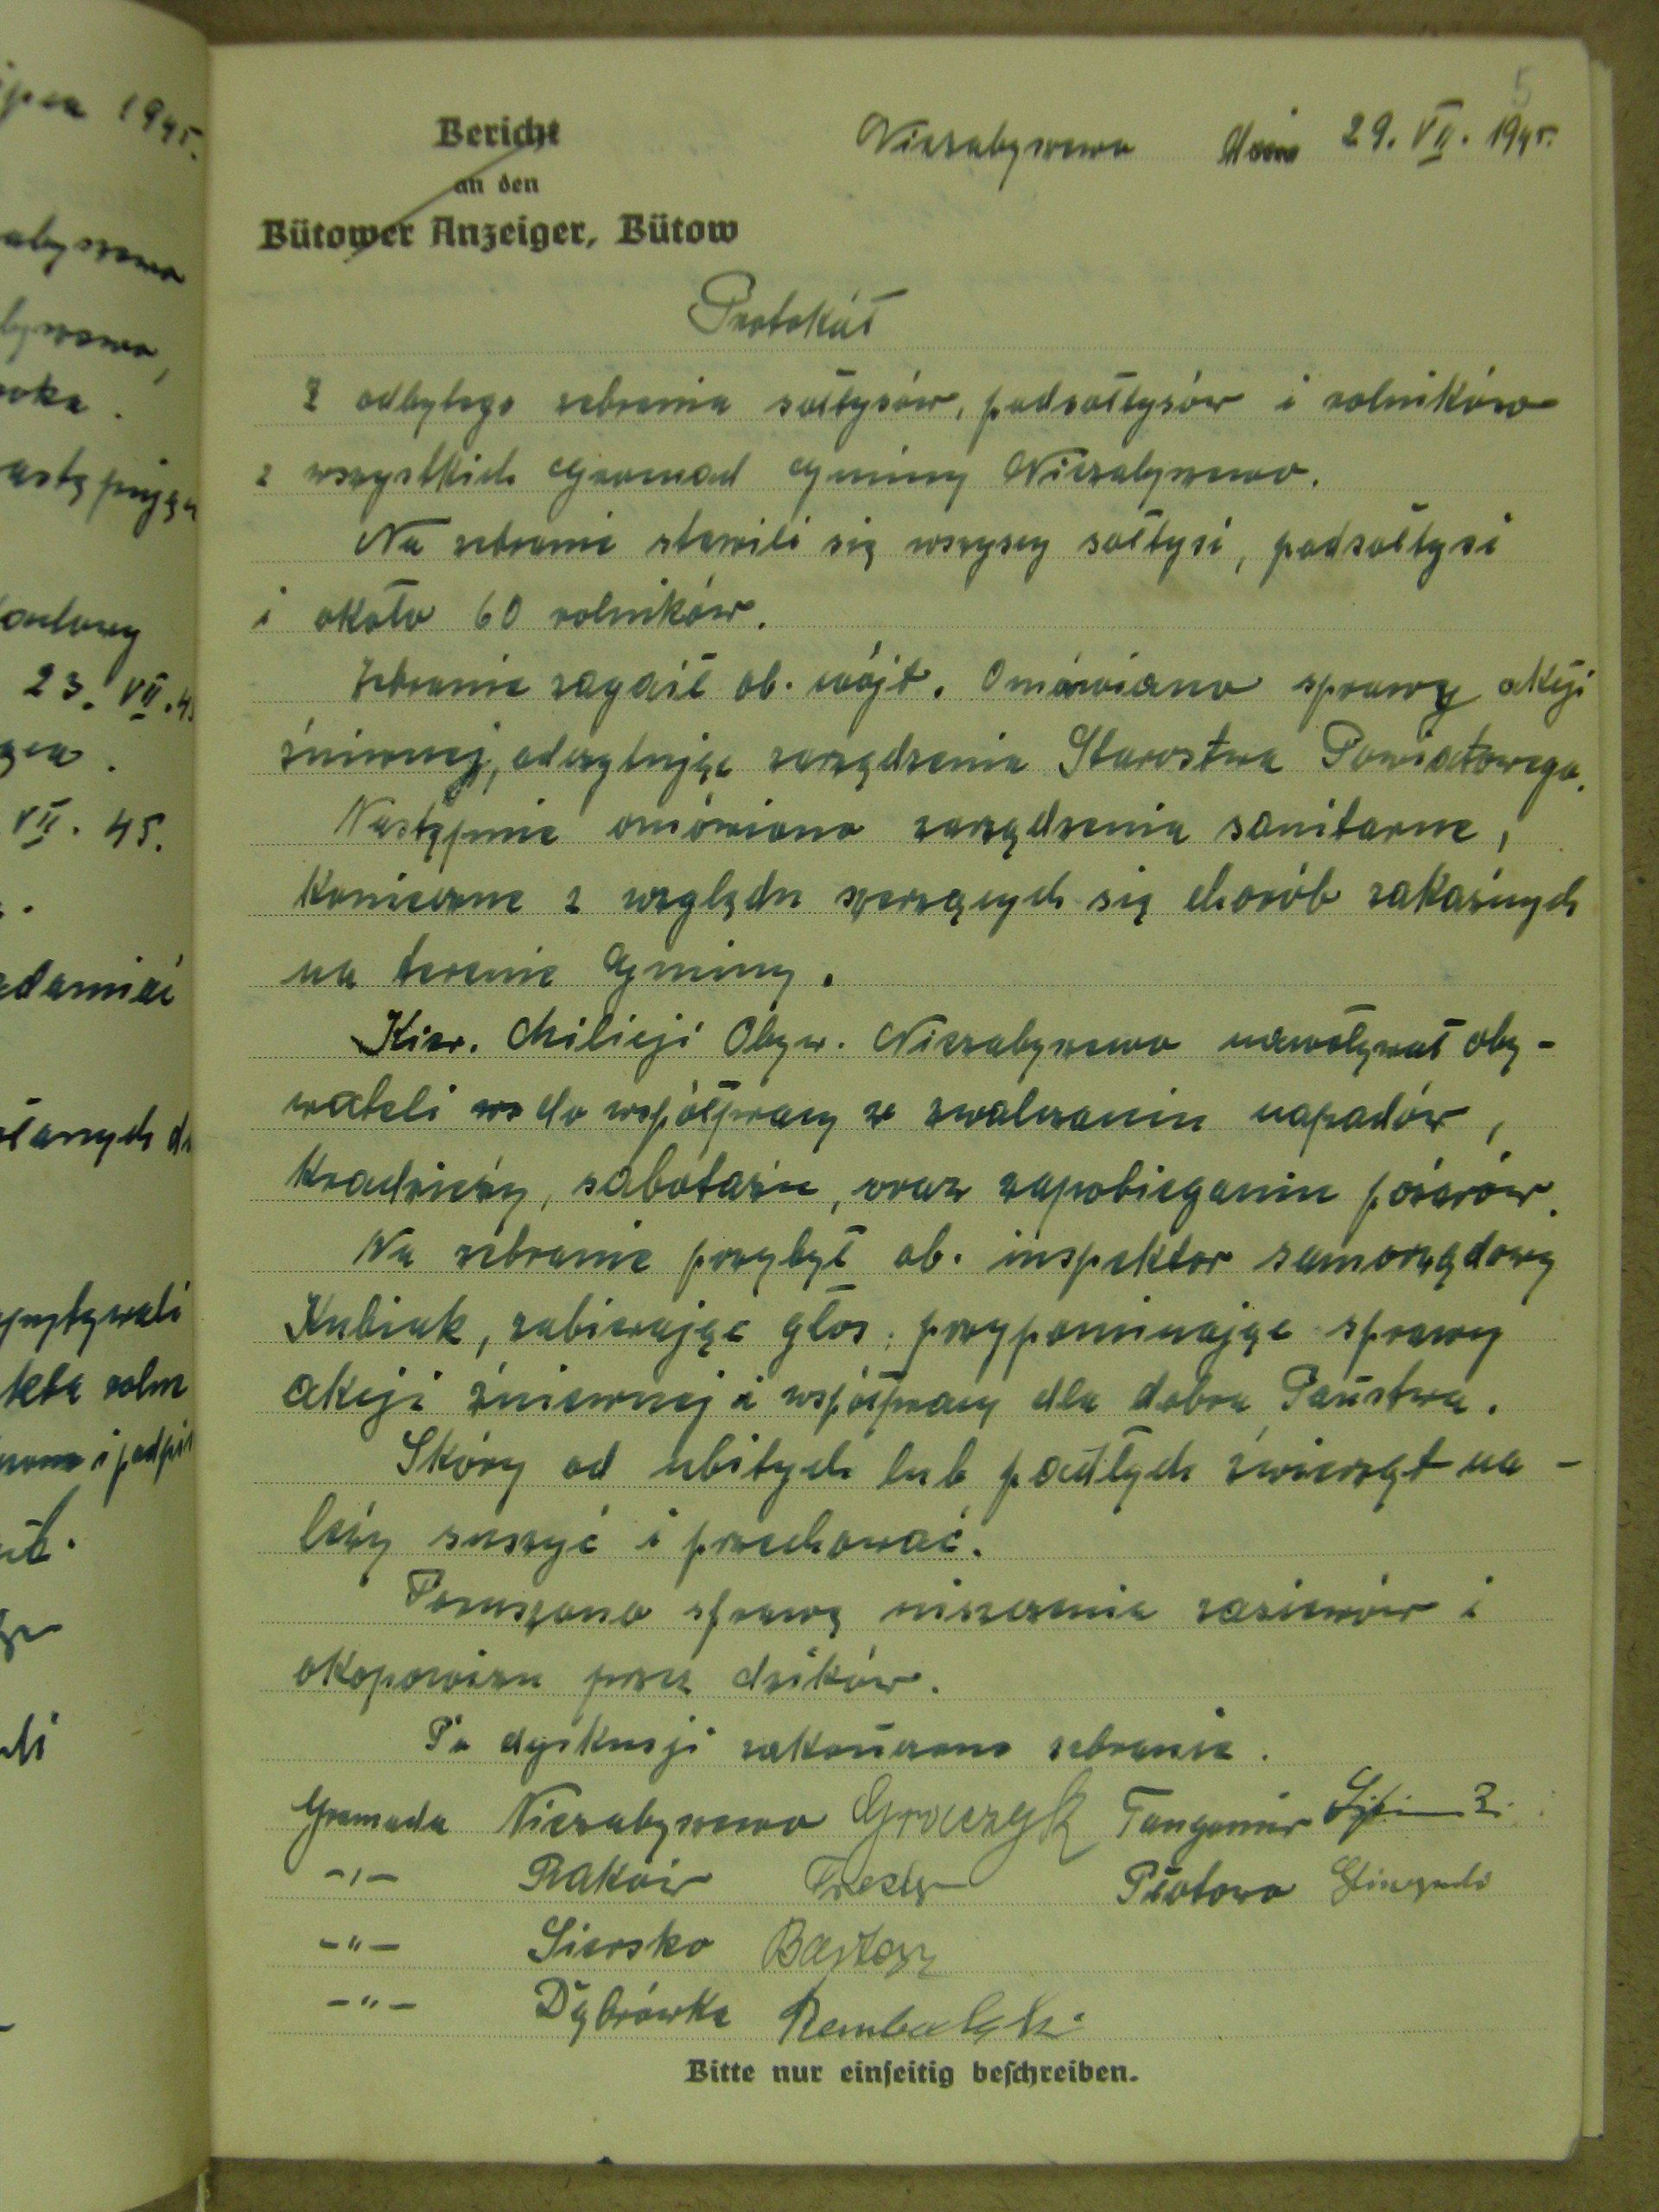 5
Bericht
an den
Bütower Anzeiger, Bütow
Niezabyszewo dnia 29. VII. 1945.
Protokół
Z odbytego zebrania sołtysów, podsołtysów i rolników
z wszystkich Gromad Gminy Niezabyszewo.
Na zebranie stawili się wszyscy sołtysi, podsołtysi
i około 60 rolników.
Zebranie zagaił ob. wójt. Omawiano sprawę akcji
żniwnej, odczytując zarządzenia Starostwa Powiatowego.
Następnie omówiono zarządzenia sanitarne,
konieczne z względu szerzących się chorób zakaźnych
na terenie Gminy.
Kier. Milicji Obyw. Niezabyszewo nawoływał oby-
wateli do współpracy w zwalczaniu napadów,
kradzieży, sabotażu, oraz zapobieganiu pożarów.
Na zebranie przybył ob. inspektor samorządowy
Kubiak, zabierając głos, przypominając sprawy
akcji żniwnej i współpracy dla dobra Państwa.
Skóry od ubitych lub padłych zwierząt na-
leży suszyć i przechować.
Poruszono sprawę niszczenia zasiewów i
okopowizn przez dzików.
Po dyskusji zakończono zebranie.
Gromada Niezabyszewo Graczyk Tangomir
-"- Raków Płotowo
-"- Siersko
-"- Dąbrówka Rembalski
Bitte nur einſeitig beſchreiben.